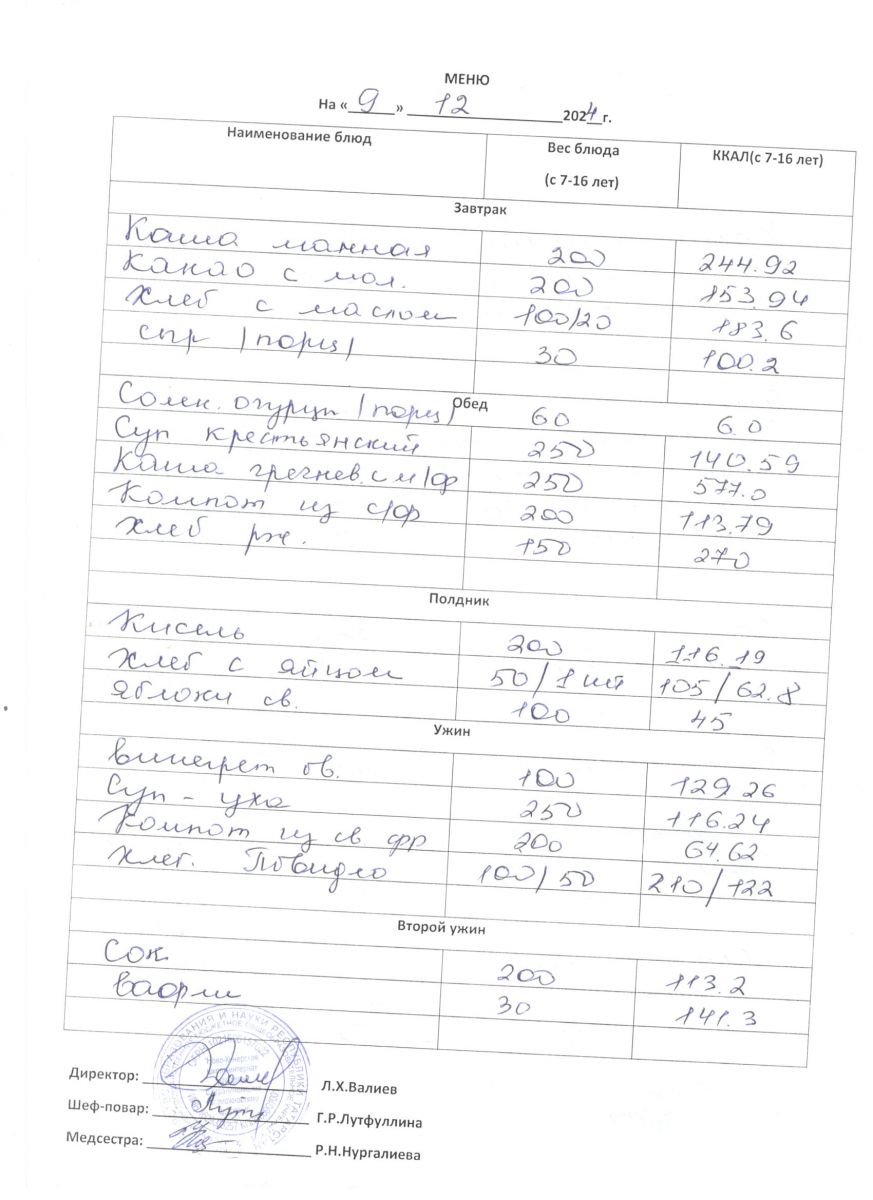 МЕНЮ
На «9» 12 2024 г.
Наименование блюд Вес блюда (с 7-16 лет) ККАЛ(с 7-16 лет)
Завтрак
Каша манная 200 244.92
Какао с мол. 200 153.94
Хлеб с маслом 100/20 183.6
сыр /порц/ 30 100.2
Обед
Солен. огурцы /порц/ 60 6.0
Суп крестьянский 250 140.59
Каша гречнев. с м/ф 250 577.0
Компот из с/ф 200 113.79
Хлеб рж. 150 270
Полдник
Кисель 200 116.19
Хлеб с яйцом 50/1 шт 105/62.8
Яблоки св. 100 45
Ужин
Винегрет ов. 100 129.26
Суп - уха 250 116.24
Компот из св фр 200 64.62
Хлеб. Повидло 100/50 210/122
Второй ужин
Сок 200 113.2
Вафли 30 141.3
Директор: Л.Х.Валиев
Шеф-повар: Г.Р.Лутфуллина
Медсестра: Р.Н.Нургалиева